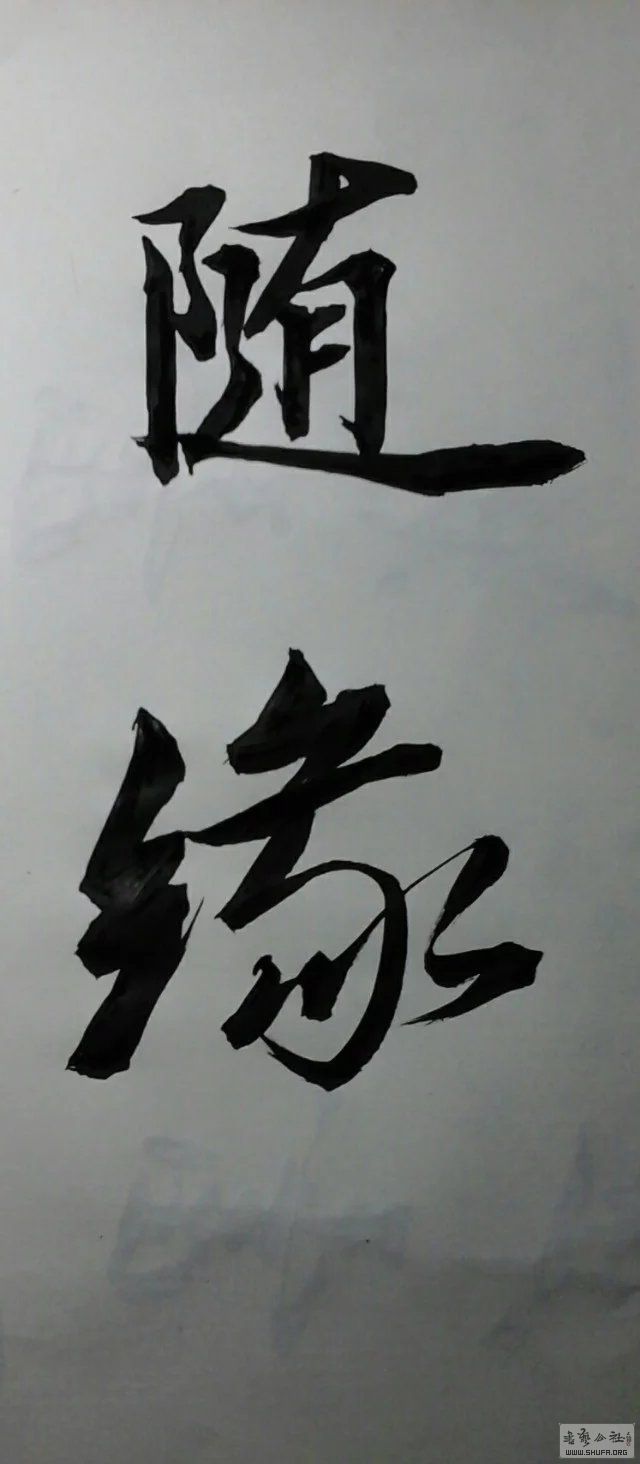 随缘
书艺公社
WWW.SHUFA.ORG